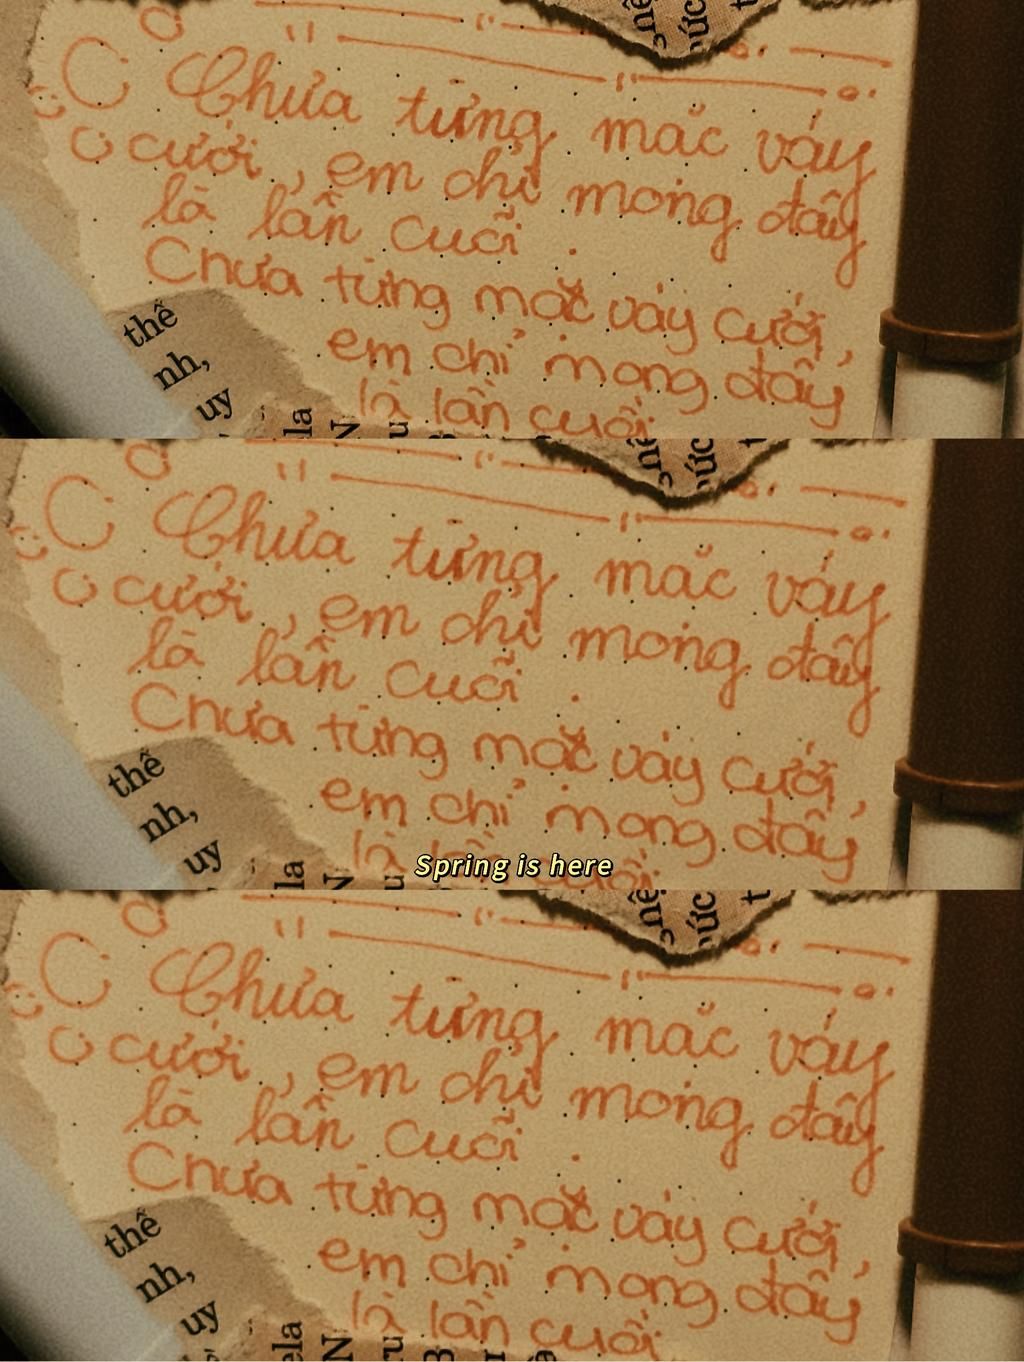 Chưa từng mắc váy
cưới, em chỉ mong đây
là lần cuối.
Chưa từng mắc váy cưới,
em chỉ mong đây
là lần cuối
thề
nh,
uy
ela
N
nê
úc
t
Chưa từng mắc váy
cưới, em chỉ mong đây
là lần cuối.
Chưa từng mắc váy cưới,
em chỉ mong đây
là lần cuối
Spring is here
thề
nh,
uy
ela
N
nê
úc
t
Chưa từng mắc váy
cưới, em chỉ mong đây
là lần cuối.
Chưa từng mắc váy cưới,
em chỉ mong đây
là lần cuối
thề
nh,
uy
ela
N
ru
B
nê
úc
t